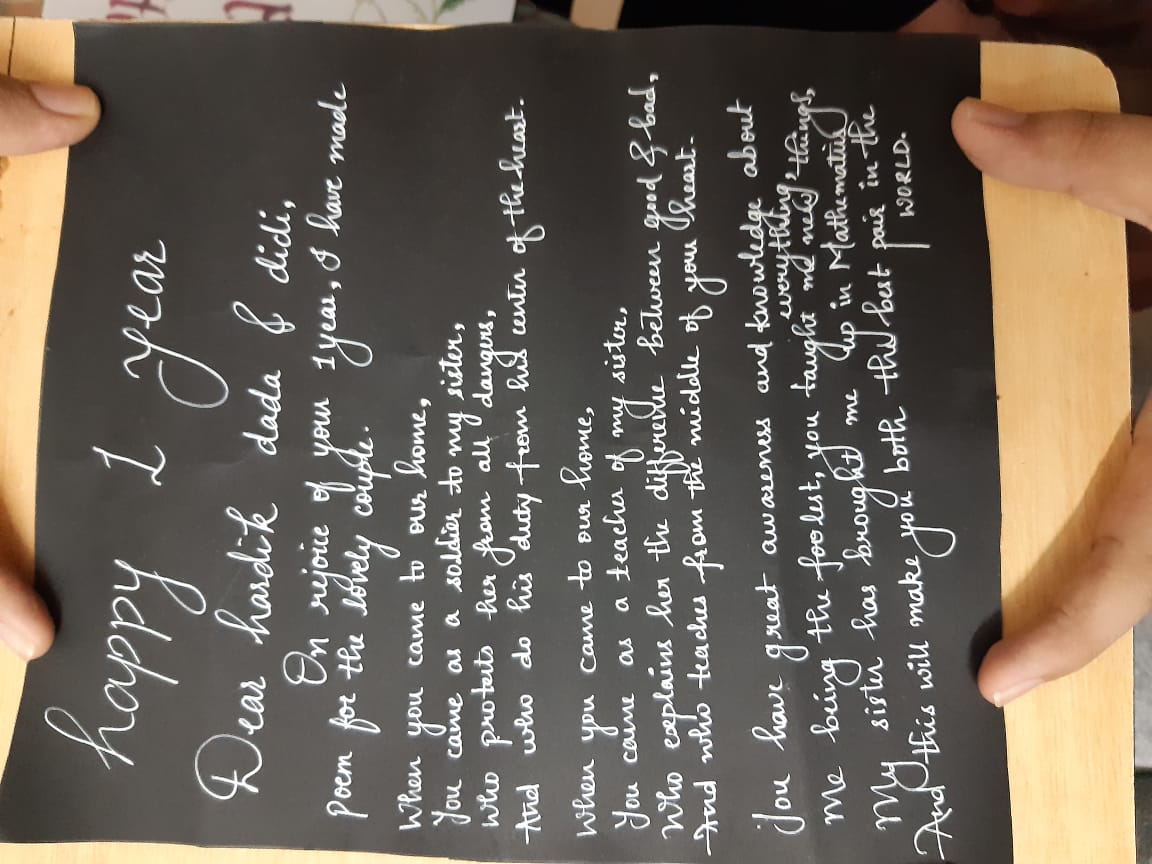 happy 1 year
Dear hardik dada & didi,
On rejoice of your 1 year, I have made
poem for the lovely couple.
When you came to our home,
You came as a soldier to my sister,
Who protects her from all dangers,
And who do his duty from his center of the heart.
When you came to our home,
You came as a teacher of my sister,
Who explains her the difference between good & bad,
And who teaches from the middle of your heart.
You have great awareness and knowledge about
everything,
Me being the foolest, you taught me new things,
My sister has brought me up in Mathematics
And this will make you both the best pair in the
WORLD.